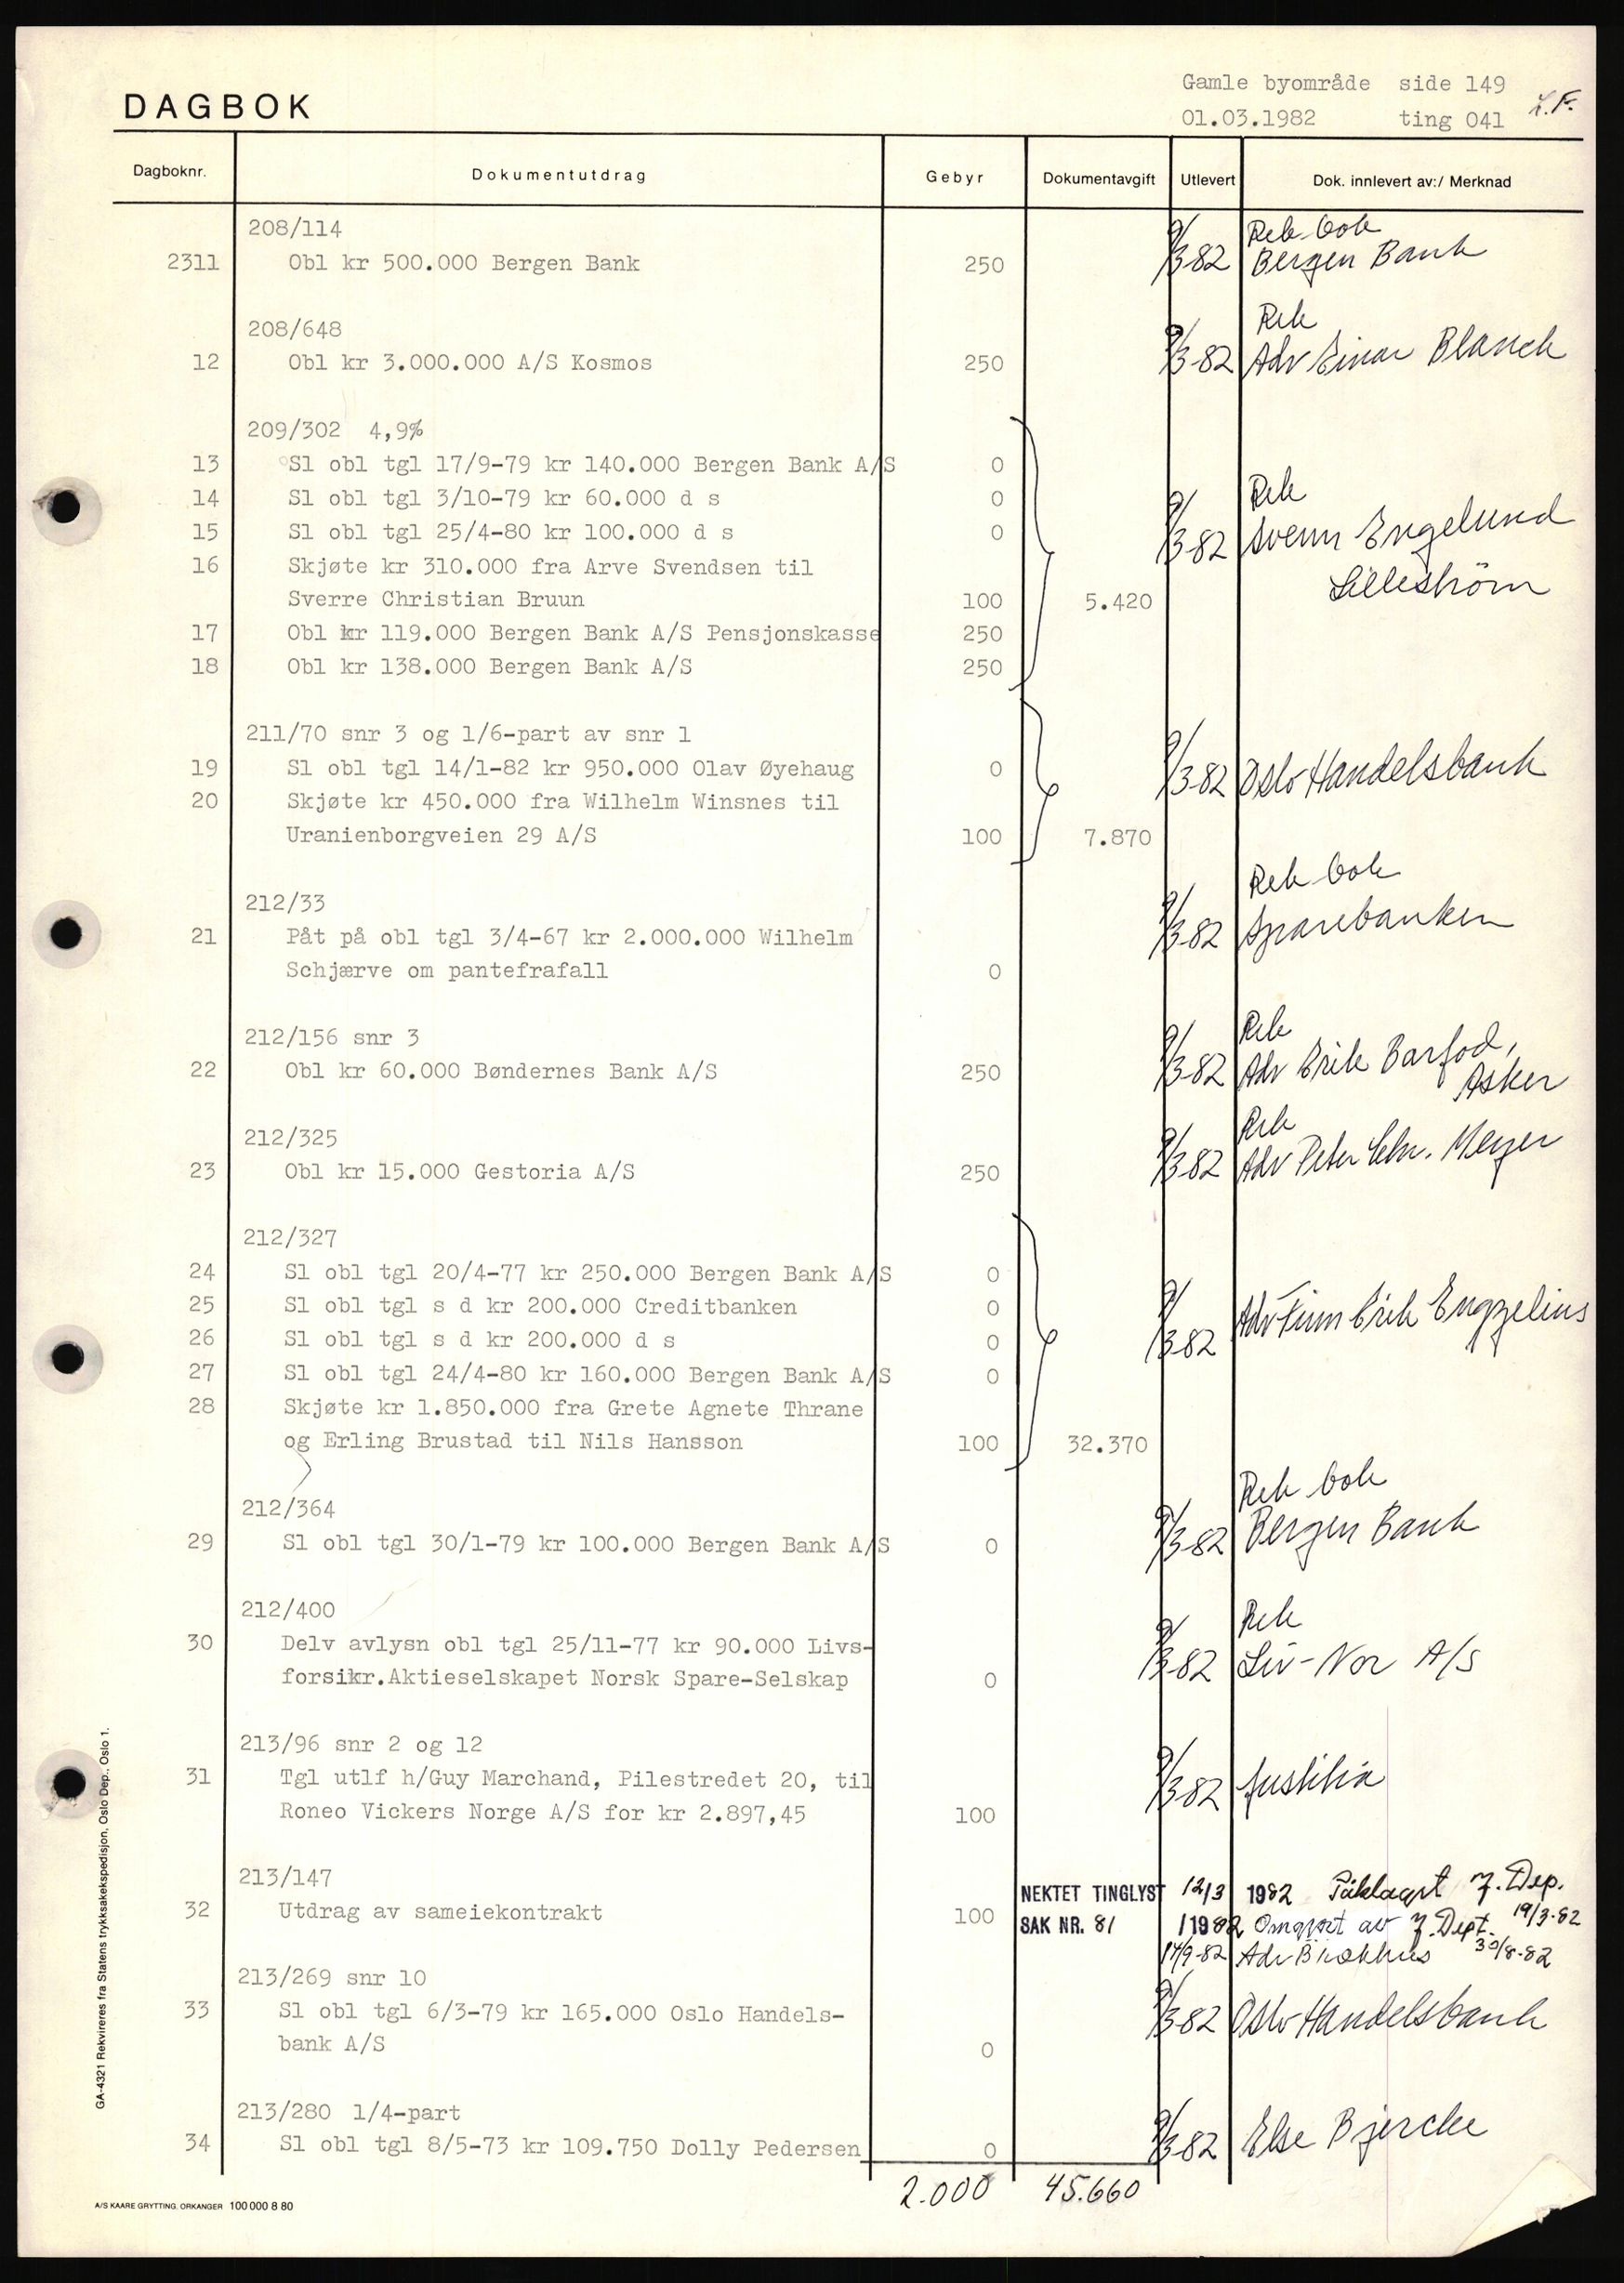 DAGBOK
Gamle byområde side 149
01.03.1982 ting 041
Dagboknr. Dokumentutdrag Gebyr Dokumentavgift Utlevert Dok. innlevert av:/ Merknad
208/114 Rek bok
2311 Obl kr 500.000 Bergen Bank 250 9/3-82 Bergen Bank
208/648 Rek
12 Obl kr 3.000.000 A/S Kosmos 250 9/3-82 Adv Einar Blanck
209/302 4,9%
13 Sl obl tgl 17/9-79 kr 140.000 Bergen Bank A/S 0
14 Sl obl tgl 3/10-79 kr 60.000 d s 0 Rek
15 Sl obl tgl 25/4-80 kr 100.000 d s 0 9/3-82 Svenn Engelund
16 Skjøte kr 310.000 fra Arve Svendsen til Lillestrøm
Sverre Christian Bruun 100 5.420
17 Obl kr 119.000 Bergen Bank A/S Pensjonskasse 250
18 Obl kr 138.000 Bergen Bank A/S 250
211/70 snr 3 og 1/6-part av snr 1
19 Sl obl tgl 14/1-82 kr 950.000 Olav Øyehaug 0 9/3-82 Oslo Handelsbank
20 Skjøte kr 450.000 fra Wilhelm Winsnes til
Uranienborgveien 29 A/S 100 7.870
212/33 Rek bok
21 Påt på obl tgl 3/4-67 kr 2.000.000 Wilhelm 9/3-82 Sparebanken
Schjærve om pantefrafall 0
212/156 snr 3 Rek
22 Obl kr 60.000 Bøndernes Bank A/S 250 9/3-82 Adv Erik Barfod,
Asker
212/325 Rek
23 Obl kr 15.000 Gestoria A/S 250 9/3-82 Adv Peter Chr. Meyer
212/327
24 Sl obl tgl 20/4-77 kr 250.000 Bergen Bank A/S 0
25 Sl obl tgl s d kr 200.000 Creditbanken 0 9/3-82 Adv Finn Erik Engzelius
26 Sl obl tgl s d kr 200.000 d s 0
27 Sl obl tgl 24/4-80 kr 160.000 Bergen Bank A/S 0
28 Skjøte kr 1.850.000 fra Grete Agnete Thrane
og Erling Brustad til Nils Hansson 100 32.370
212/364 Rek bok
29 Sl obl tgl 30/1-79 kr 100.000 Bergen Bank A/S 0 9/3-82 Bergen Bank
212/400 Rek
30 Delv avlysn obl tgl 25/11-77 kr 90.000 Livs- 9/3-82 Liv-Nor A/S
forsikr.Aktieselskapet Norsk Spare-Selskap 0
213/96 snr 2 og 12
31 Tgl utlf h/Guy Marchand, Pilestredet 20, til 9/3-82 Justitia
Roneo Vickers Norge A/S for kr 2.897,45 100
213/147 NEKTET TINGLYST 12/3 1982 Påklaget J. Dep. 19/3-82
32 Utdrag av sameiekontrakt 100 SAK NR. 81 /1982 Omgjort av J. Dept. 30/8-82
Adv
213/269 snr 10
33 Sl obl tgl 6/3-79 kr 165.000 Oslo Handels- 9/3-82 Oslo Handelsbank
bank A/S 0
213/280 1/4-part
34 Sl obl tgl 8/5-73 kr 109.750 Dolly Pedersen 0 9/3-82 Else Bjercke
2.000 45.660
GA-4321 Rekvireres fra Statens trykksakekspedisjon, Oslo Dep., Oslo 1.
A/S KAARE GRYTTING. ORKANGER 100 000 8 80